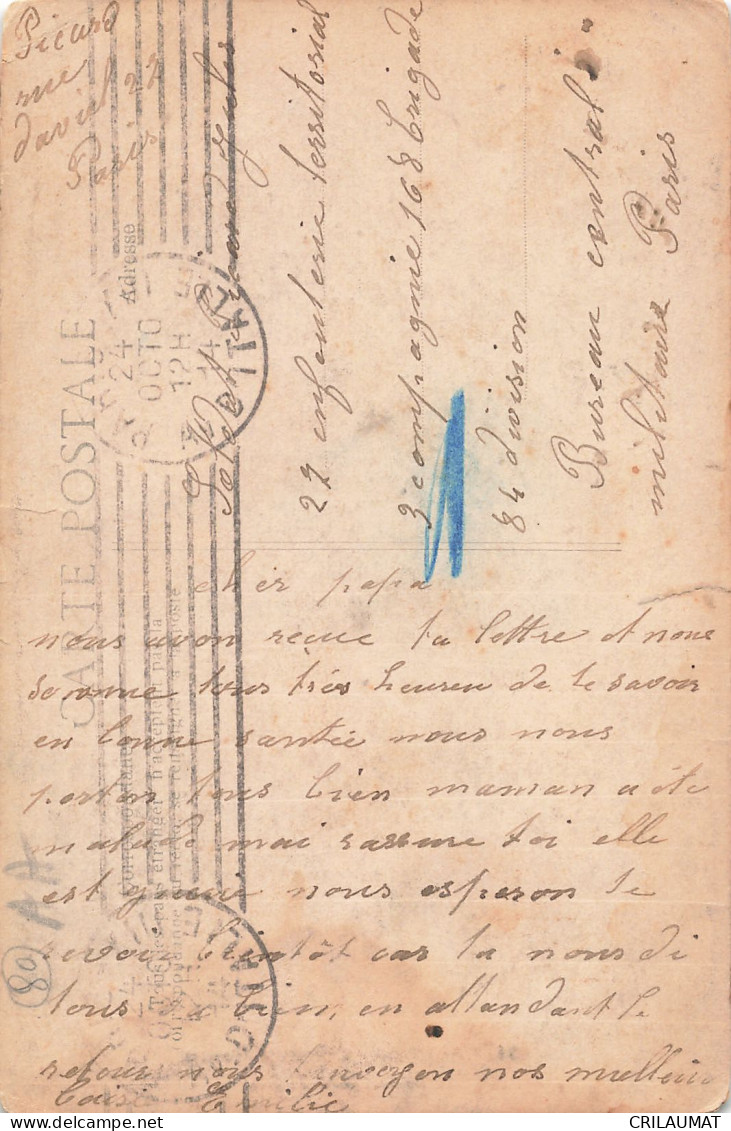 Picard
rue
daviel 22
Paris
CARTE POSTALE
Adresse
24
OCTO
12H
14
Soldat Picard Jules
22 enfenterie territorial
3 compagnie 168 brigade
84 division
Bureau central
militaire Paris
cher papa
nous avon recue ta lettre et nous
somme tous très heureu de te savoir
en bonne santée nous nous
porton tous bien maman a été
malade mai rassure toi elle
est guérie nous esperon te
revoir bientôt car tu nous di
tous va bien, en attandant le
retour nous t'envoyon nos meilleur
baisé Emilie
80
AA
CRILAUMAT